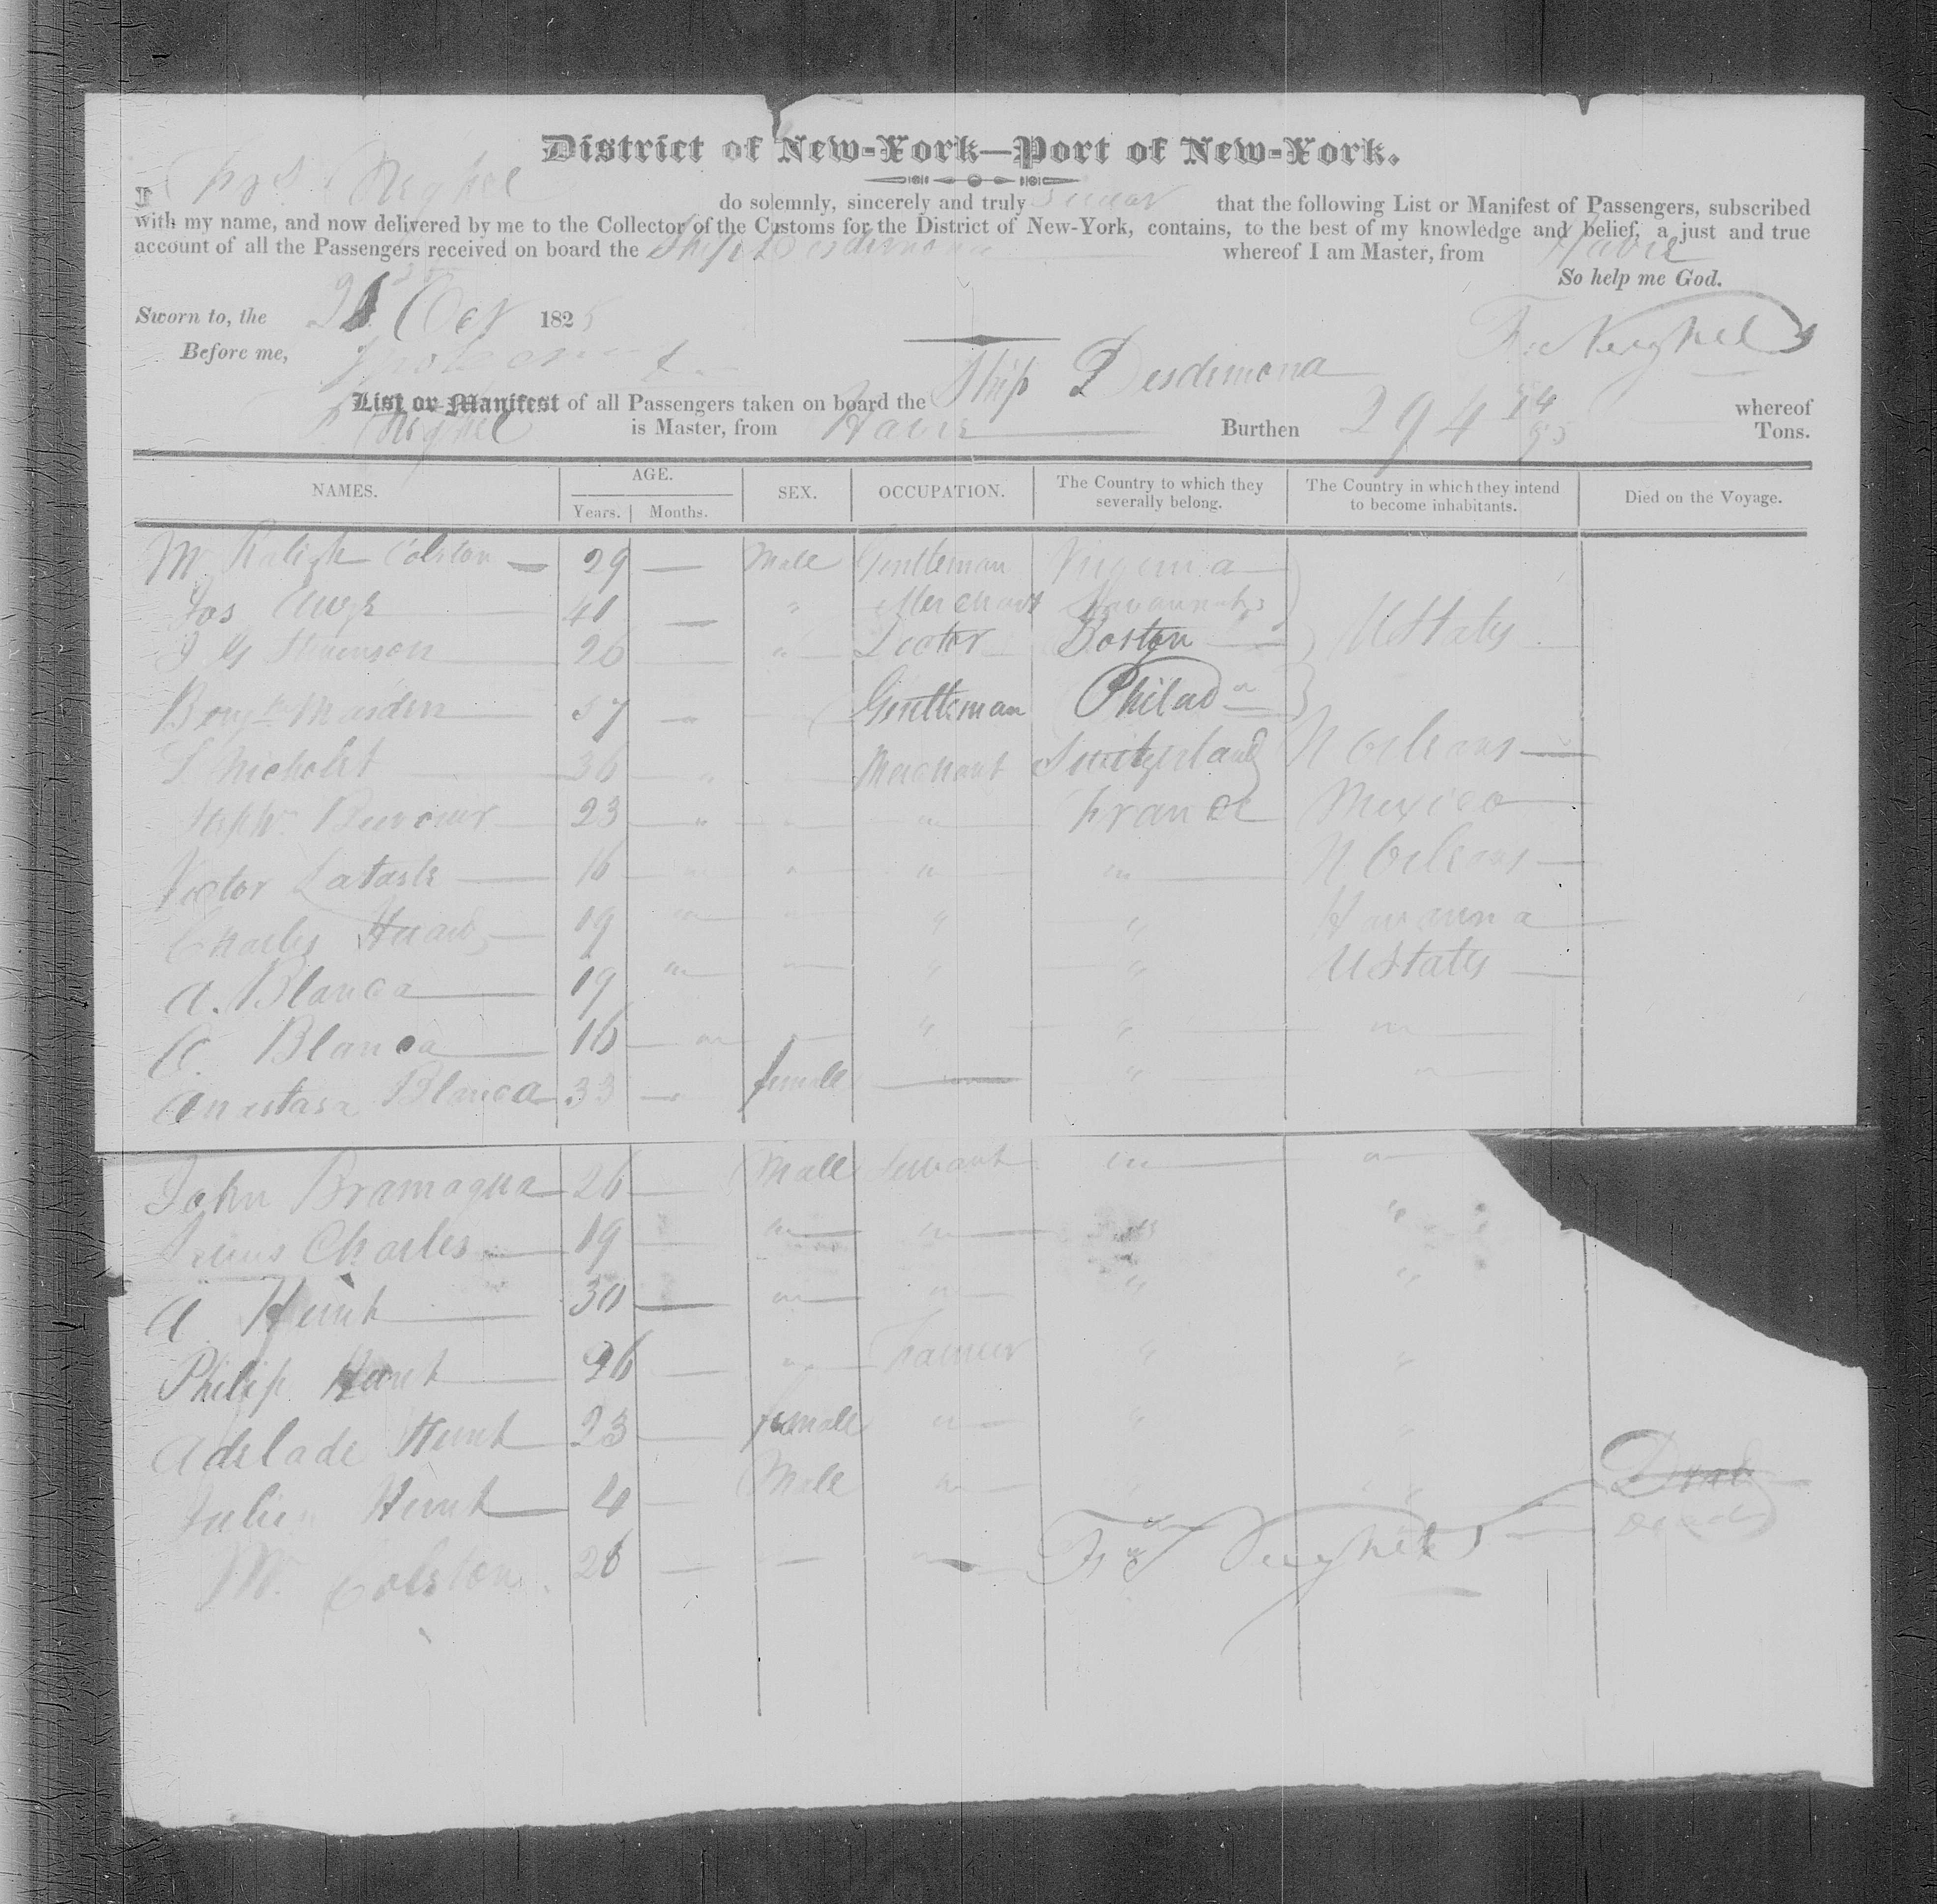 District of New-York—Port of New-York.
I do solemnly, sincerely and truly swear that the following List or Manifest of Passengers, subscribed
with my name, and now delivered by me to the Collector of the Customs for the District of New-York, contains, to the best of my knowledge and belief, a just and true
account of all the Passengers received on board the Ship Desdimona whereof I am Master, from Havre
So help me God.
Sworn to, the 21 Oct 1825
Before me,
List or Manifest of all Passengers taken on board the Ship Desdimona whereof
is Master, from Havre Burthen 294 Tons.
NAMES. AGE. SEX. OCCUPATION. The Country to which they severally belong. The Country in which they intend to become inhabitants. Died on the Voyage.
Years. Months.
Mr Raligh Colston 29 — Male Gentleman Virginia
Jos 41 — " Merchant Savannah
J G 26 " Doctor Boston U States
Benjn 57 " Gentleman Philada
36 " Merchant Switzerland N Orleans
23 " " " France Mexico
Victor Lataste 16 " " " " N Orleans
Charles Huard 19 " " " " Havanna
A. Blanca 19 " " " " U States
A. Blanca 16 " " " " "
Anastasa Blanca 33 — female — " "
John Bramaqua 26 — Male Servant " "
Charles 19 — " " " "
A Hunt 30 — " " " "
Philip Hunt 26 — " Farmer " "
Adelade Hunt 23 — female " " "
Julien Hunt 4 — Male " " " Dead
Mr Colston 28 — — " Dead